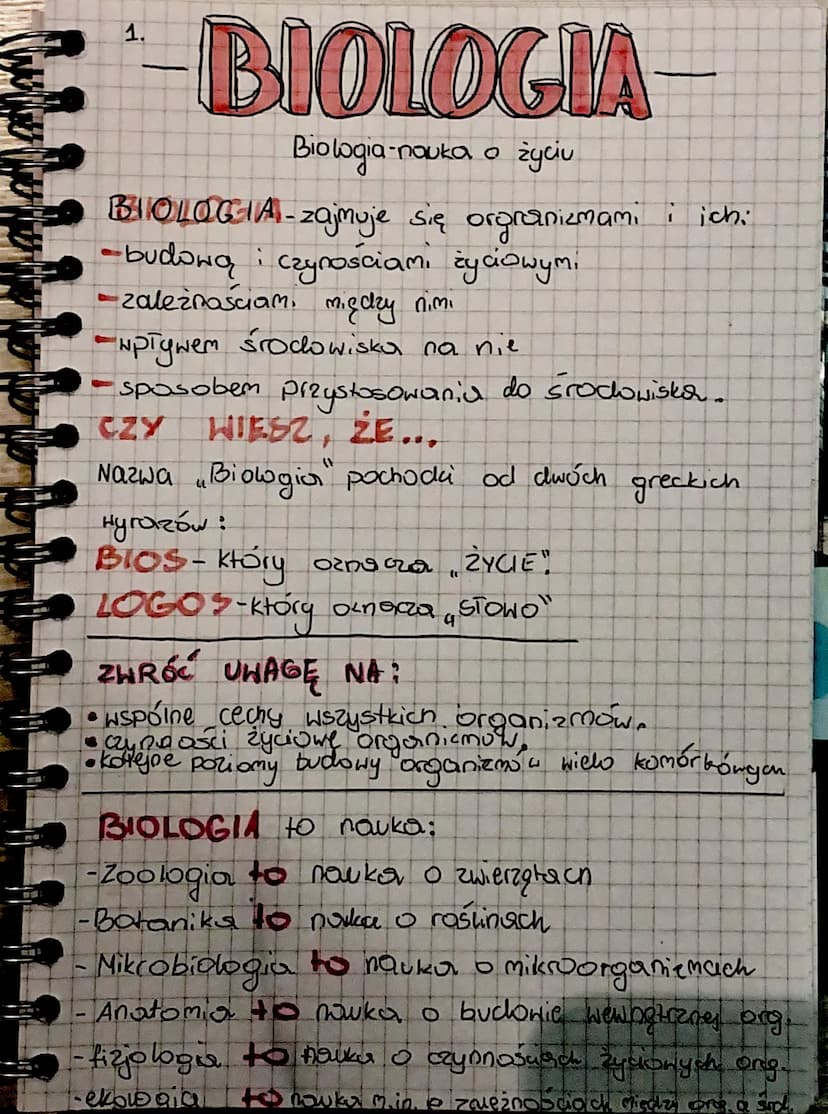 1.
BIOLOGIA
Biologia-nauka o życiu
BIOLOGIA-zajmuje się orgranizmami i ich:
-budową i czynościami życiowymi
-zależnościami między nimi
-wpływem środowiska na nie
-sposobem przystosowania do środowiska.
CZY WIESZ, ŻE...
Nazwa „Biologia" pochodzi od dwóch greckich
wyrazów:
BIOS-który oznacza „ŻYCIE".
LOGOS-który oznacza „SŁOWO"
ZWRÓĆ UWAGĘ NA:
•wspólne cechy wszystkich organizmów.
•czynności życiowe organizmów.
•kolejne poziomy budowy organizmów wielo komórkówych
BIOLOGIA to nauka:
-Zoologia to nauka o zwierzętach
-Botanika to nauka o roślinach
-Mikrobiologia to nauka o mikroorganizmach
-Anatomia to nauka o budowie wewnętrznej org.
-fizjologia to nauka o czynnościach życiowych org.
-ekologia to nauka m.in. o zależnościach między org. a środ.